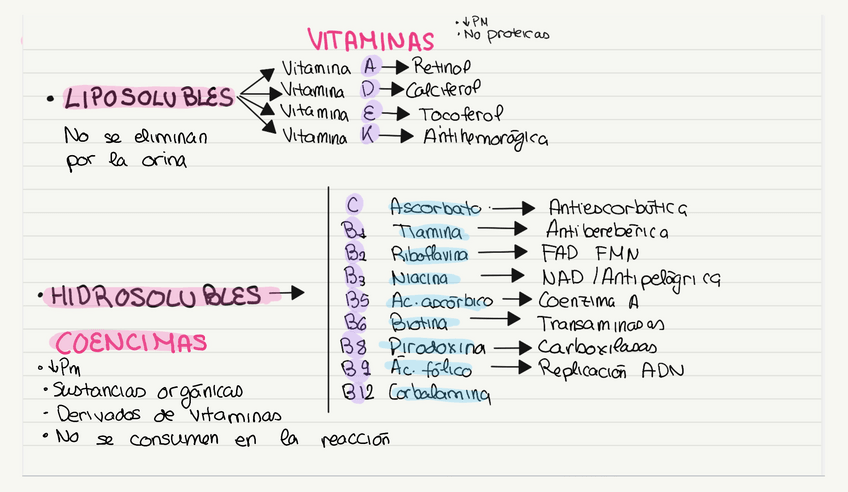 VITAMINAS
· ↓PM
· No proteicas
• LIPOSOLUBLES
Vitamina A → Retinol
Vitamina D → Calciferol
Vitamina E → Tocoferol
Vitamina K → Antihemorágica
No se eliminan
por la orina
• HIDROSOLUBLES →
C Ascorbato → Antiescorbútica
B1 Tiamina → Antiberebérica
B2 Riboflavina → FAD FMN
B3 Niacina → NAD / Antipelágrica
B5 Ac. ascórbico → Coenzima A
B6 Biotina → Transaminasas
B8 Pirodoxina → Carboxilasas
B9 Ác. fólico → Replicación ADN
B12 Corbalamina
COENCIMAS
• ↓Pm
• Sustancias orgánicas
- Derivados de vitaminas
• No se consumen en la reacción